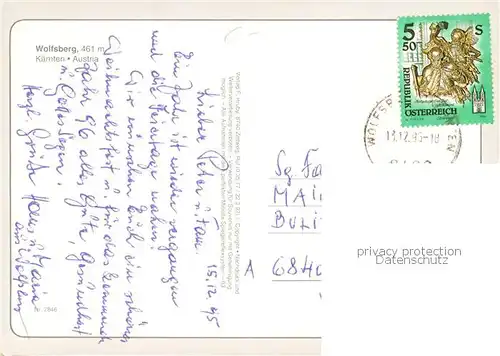 Wolfsberg, 461 m
Kärnten • Austria
15.12.95
Lieber Peter u. Fam.
Ein Jahr ist wieder vergangen
und die Feiertage nahen.
Wir wünschen Euch ein schönes
Weihnachtsfest u. für das kommende
Jahr 96 alles Gute, Gesundheit
u. Gottes Segen.
Herzl. Grüße Hans u. Maria
aus Wolfsberg
Nr. 2846
5 50 S
REPUBLIK
ÖSTERREICH
WOLFSB
Sg. Fam
MAI
A 6840
privacy protection
Datenschutz